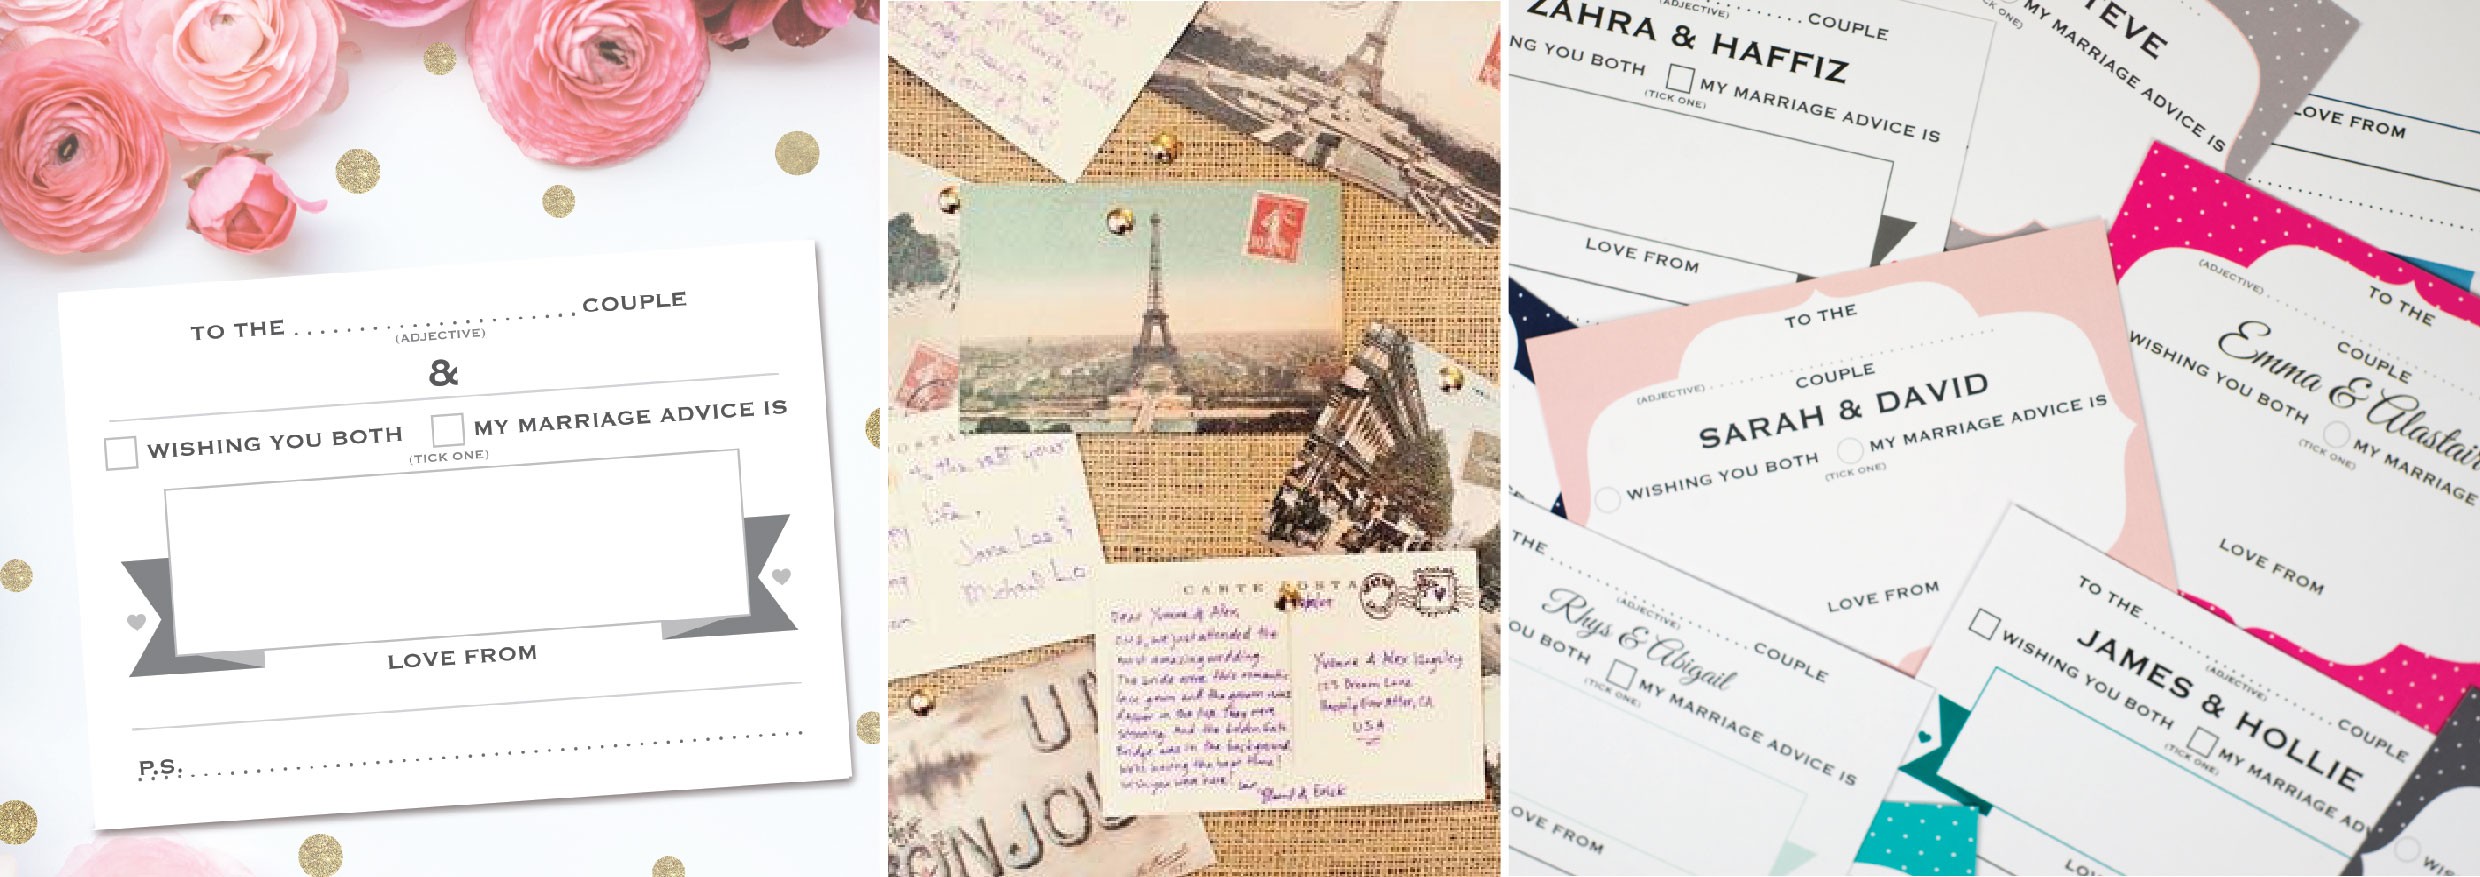 TO THE ..................... COUPLE
(ADJECTIVE)
&
WISHING YOU BOTH MY MARRIAGE ADVICE IS
(TICK ONE)
LOVE FROM
P.S.
of the rest your
life.
Jane Loo &
Michael Lo
CARTE POSTA
Dear Yvonne & Alex,
OMG, we just attended the
most amazing wedding.
The bride wore this romantic
lace gown and the groom was
dapper in the tux. They were
stunning. And the Golden Gate
Bridge was in the background.
We're having the best time!
Wish you were here!
Yvonne & Alex Langsley
123 Dream Lane
Happily Ever After, CA
USA
ONJOU
COUPLE
(ADJECTIVE)
ZAHRA & HAFFIZ
NG YOU BOTH MY MARRIAGE ADVICE IS
(TICK ONE)
LOVE FROM
TEVE
CK ONE)
MY MARRIAGE ADVICE IS
LOVE FROM
TO THE
(ADJECTIVE)
COUPLE
SARAH & DAVID
WISHING YOU BOTH MY MARRIAGE ADVICE IS
(TICK ONE)
LOVE FROM
TO THE
(ADJECTIVE)
COUPLE
Emma & Alastair
WISHING YOU BOTH MY MARRIAGE
(TICK ONE)
LOVE FROM
THE COUPLE
(ADJECTIVE)
Rhys & Abigail
OU BOTH MY MARRIAGE ADVICE IS
(TICK ONE)
OVE FROM
TO THE COUPLE
(ADJECTIVE)
JAMES & HOLLIE
WISHING YOU BOTH MY MARRIAGE AD
(TICK ONE)
LOVE
WIS